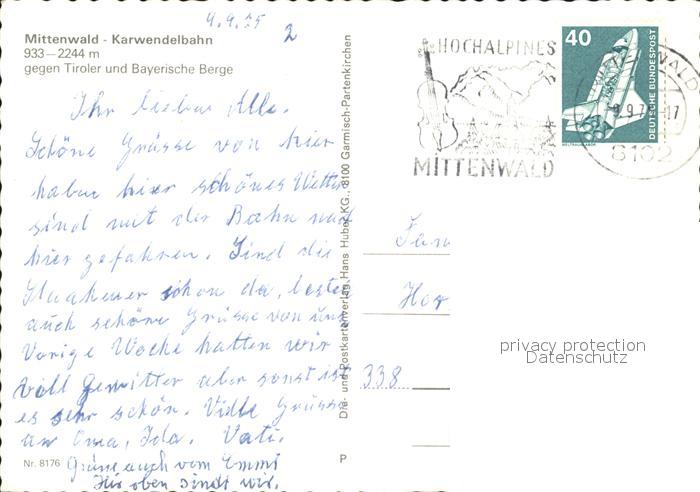 4.9.75
2
Mittenwald - Karwendelbahn
933—2244 m
gegen Tiroler und Bayerische Berge
Ihr lieben Alle.
Schöne Grüsse von hier
haben hier schönes Wetter
sind mit der Bahn nach
hier gefahren. Sind die
schon da, besten
auch schöne Grüsse von uns
Vorige Woche hatten wir
voll Gewitter aber sonst ist
es sehr schön. Viele Grüsse
an Oma, Ida. Vati.
Grüsse auch vom Emmi
Hir oben sindt wir.
Nr. 8176
P
Die- und Postkartenverlag Hans Huber KG., 8100 Garmisch-Partenkirchen
HOCHALPINES
MITTENWALD
40
DEUTSCHE BUNDESPOST
WELTRAUMLABOR
MITTENWALD
8102
Fam
Hor
338
privacy protection
Datenschutz